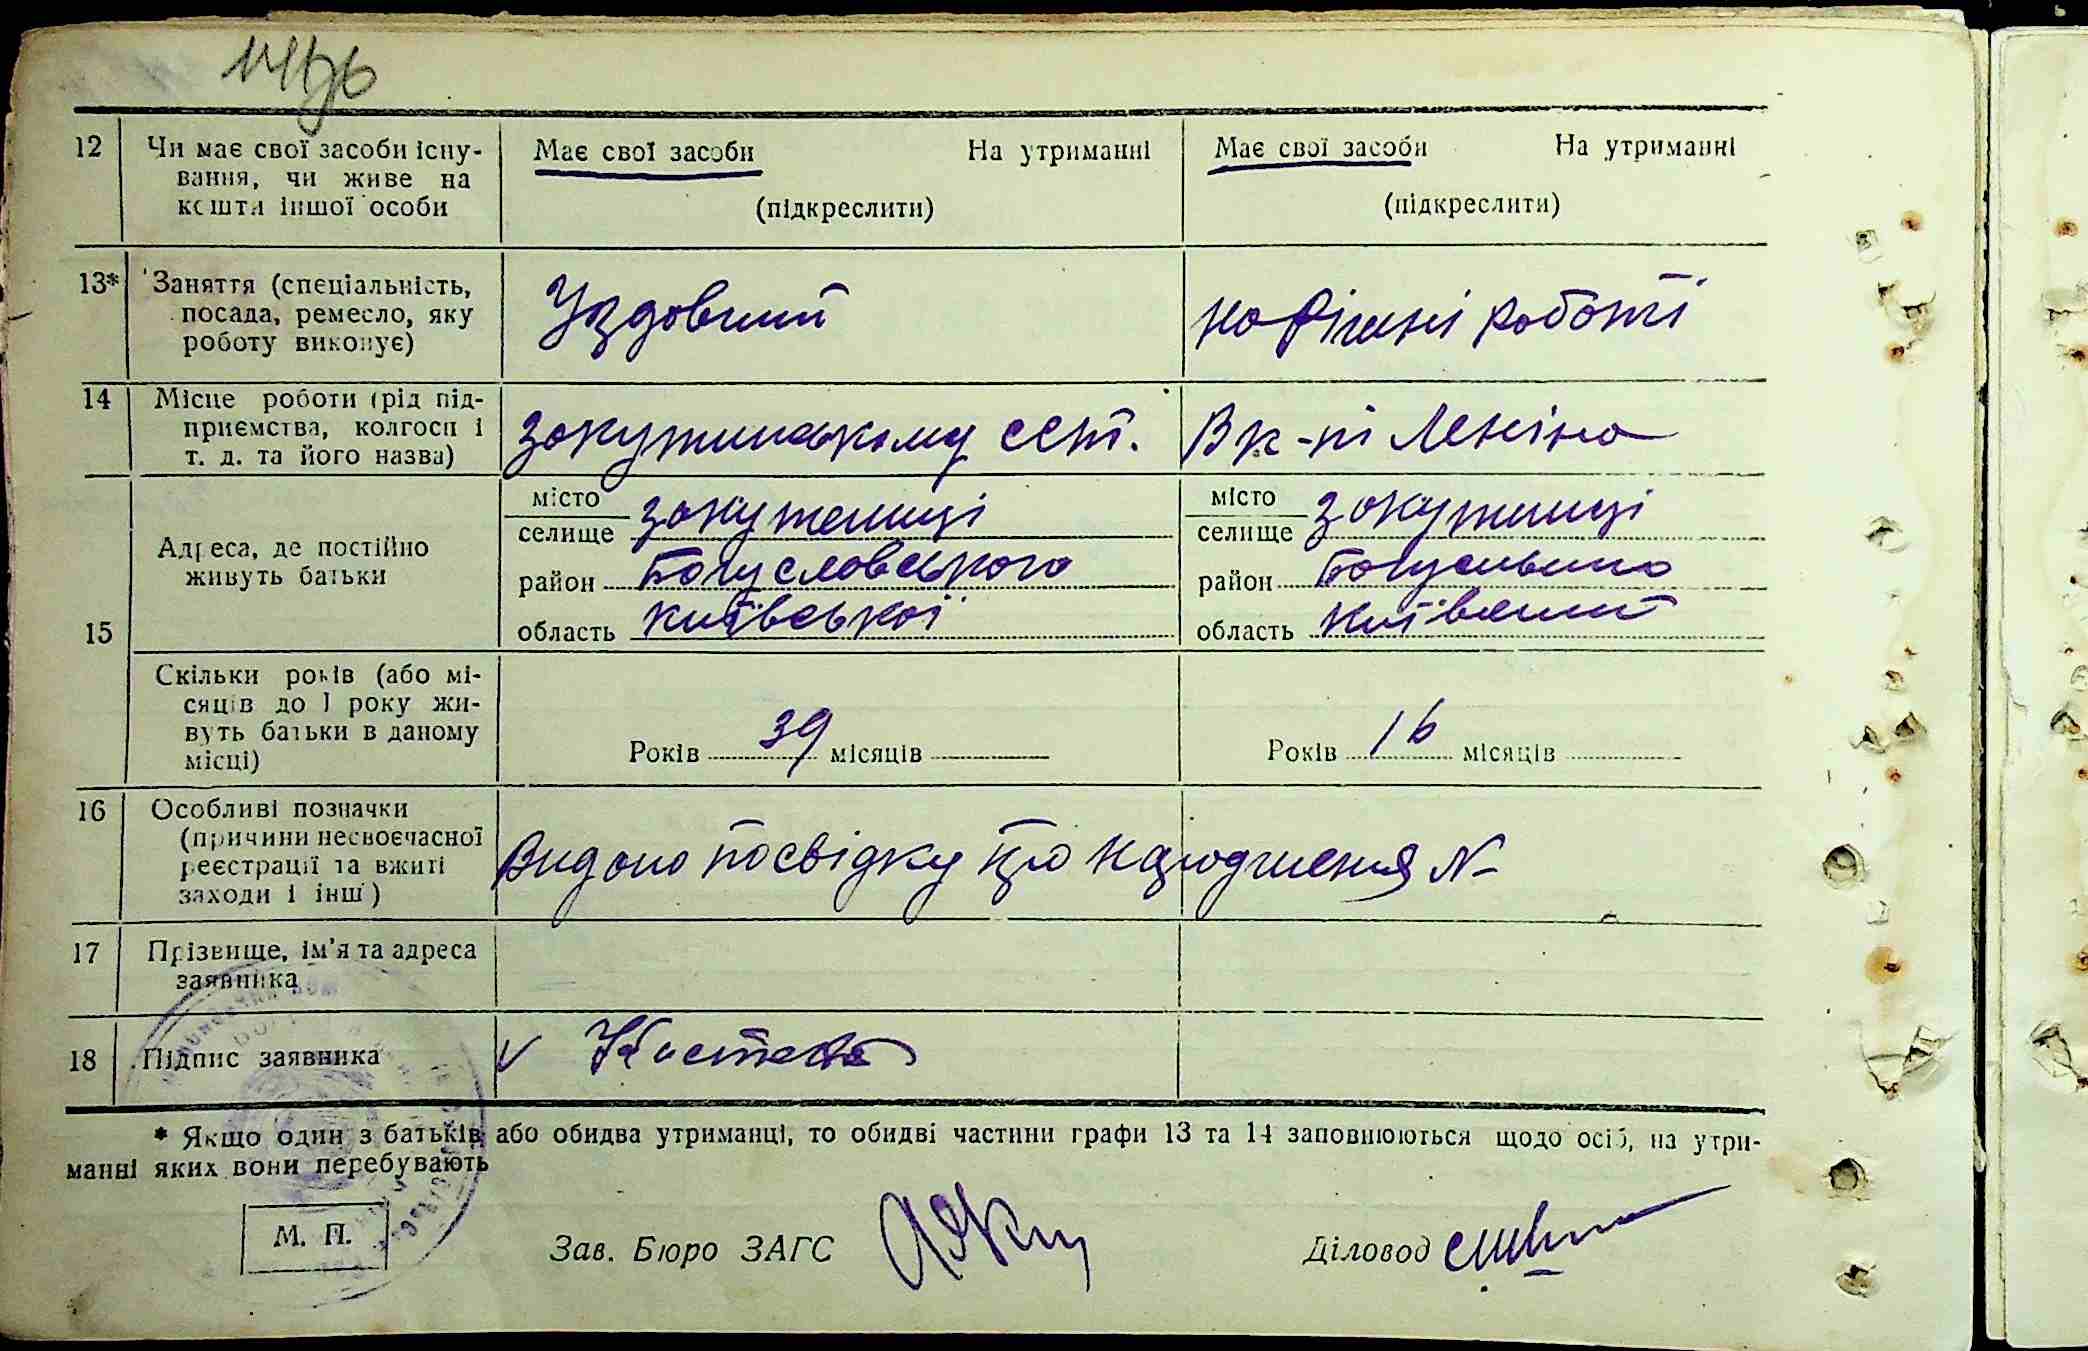 12 Чи має свої засоби існу-
вання, чи живе на
кошти іншої особи
Має свої засоби На утриманні
(підкреслити)
Має свої засоби На утриманні
(підкреслити)
13* Заняття (спеціальність,
посада, ремесло, яку
роботу виконує)
Їздовий
на різній роботі
14 Місце роботи (рід під-
приємства, колгосп і
т. д. та його назва)
закутинському
В к-пі Леніна
15 Адреса, де постійно
живуть батьки
місто
селище закутинці
район Богуславського
область київської
місто
селище закутинці
район
область київський
Скільки років (або мі-
сяців до 1 року жи-
вуть батьки в даному
місці)
Років 39 місяців
Років 16 місяців
16 Особливі позначки
(причини несвоєчасної
реєстрації та вжиті
заходи і інш)
Видано посвідку про народження №
17 Прізвище, ім'я та адреса
заявника
18 Підпис заявника
* Якщо один з батьків або обидва утриманці, то обидві частини графи 13 та 14 заповнюються щодо осіб, на утри-
манні яких вони перебувають
М. П.
Зав. Бюро ЗАГС
Діловод